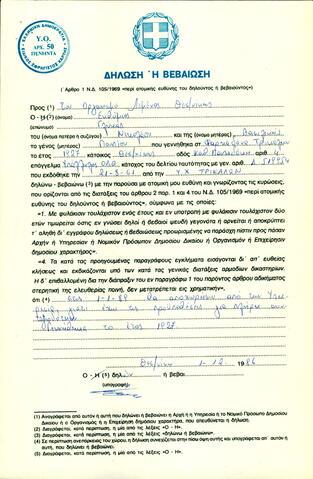 Υ.Ο.
ΑΡΣ. 50
ΠΕΝΗΝΤΑ
ΔΗΛΩΣΗ Ή ΒΕΒΑΙΩΣΗ
(Άρθρο 1 Ν.Δ. 105/1969 «περί ατομικής ευθύνης του δηλούντος ή βεβαιούντος»)
Προς (1) Τον Οργανισμό Λιμένος Θεσ/νίκης
Ο - Η (2) (όνομα) Ευθύμιος
(επώνυμο)
(όνομα πατέρα ή συζύγου) Νικολάου και της (όνομα μητέρας) Βασιλικής
το γένος (μητέρας) που γεννήθηκε στ Τρικάλων
το έτος 1927 κάτοικος Θεσ/νίκης οδός αριθ. 4
επάγγελμα Υπάλληλος ΟΛΘ κάτοχος του δελτίου ταυτ. με αριθ.
που εκδόθηκε την 21-3-61 από την Υ.Χ. ΤΡΙΚΑΛΩΝ
δηλώνω - βεβαιώνω (3) με την παρούσα με ατομική μου ευθύνη και γνωρίζοντας τις κυρώσεις,
που ορίζονται από τις διατάξεις του άρθρου 2 παρ. 1 και 4 του Ν.Δ. 105/1969 «περί ατομικής
ευθύνης του δηλούντος ή βεβαιούντος», σύμφωνα με τις οποίες:
«1. Με φυλάκιση τουλάχιστον ενός έτους και εν υποτροπή με φυλάκιση τουλάχιστον δύο
ετών τιμωρείται όστις εν γνώσει δηλοί ή βεβαιοί ψευδή γεγονότα ή αρνείται ή αποκρύπτει
τ' αληθή δι' εγγράφου δηλώσεως ή βεβαιώσεως προωρισμένης να παράσχη πίστη προς πάσαν
Αρχήν ή Υπηρεσίαν ή Νομικόν Πρόσωπον Δημοσίου Δικαίου ή Οργανισμόν ή Επιχείρηση
δημοσίου χαρακτήρος».
«4. Τα κατά τας προηγουμένας παραγράφους εγκλήματα εισάγονται δι' απ' ευθείας
κλήσεως και εκδικάζονται υπό των κατά τας γενικάς διατάξεις αρμοδίων δικαστηρίων.
Η δ' επιβαλλομένη δια την διάπραξιν του εν παραγράφω 1 του παρόντος άρθρου αδικήματος
στερητική της ελευθερίας ποινή, δεν μετατρέπεται εις χρηματικήν»
ότι (4) στις 1-1-89 θα αποχωρήσω από την Υπη-
ρεσία γιατί έχω τις προϋποθέσεις για πλήρη συν-
το έτος 1927.
Θεσ/νίκη 1-12-1986
Ο - Η (5) δηλών ή βεβαι
(υπογραφή)
(1) Αναγράφεται από αυτόν ή αυτή που δηλώνει ή βεβαιώνει η Αρχή ή η Υπηρεσία ή το Νομικό Πρόσωπο Δημοσίου
Δικαίου ή ο Οργανισμός ή η Επιχείρηση δημοσίου χαρακτήρα, που απευθύνεται η δήλωση.
(2) Διαγράφεται, κατά περίπτωση, η μία από τις λέξεις «Ο - Η».
(3) Διαγράφεται, κατά περίπτωση, η μία από τις λέξεις «δηλώνω ή βεβαιώνω».
(4) Σε περίπτωση ανεπάρκειας του χώρου, η δήλωση συνεχίζεται στην πίσω όψη αυτής και υπογράφεται απ' αυτόν ή
αυτή, που δηλώνει ή βεβαιώνει.
(5) Διαγράφεται, κατά περίπτωση, η μία από τις λέξεις «Ο - Η».